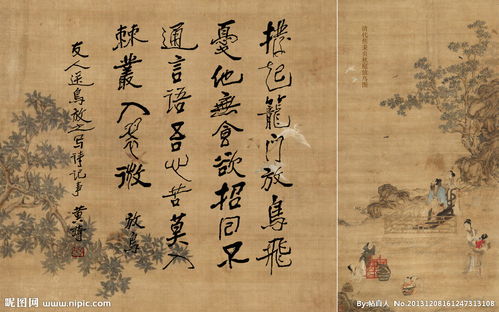 起籠門放鳥飛
憂他無食欲招回不
通言語吾心苦莫入
棘叢入翠微 放鳥
友人送鳥放之写诗记事 黄
清代
昵图网 www.nipic.com
By:站直人 No.20131208161247313108